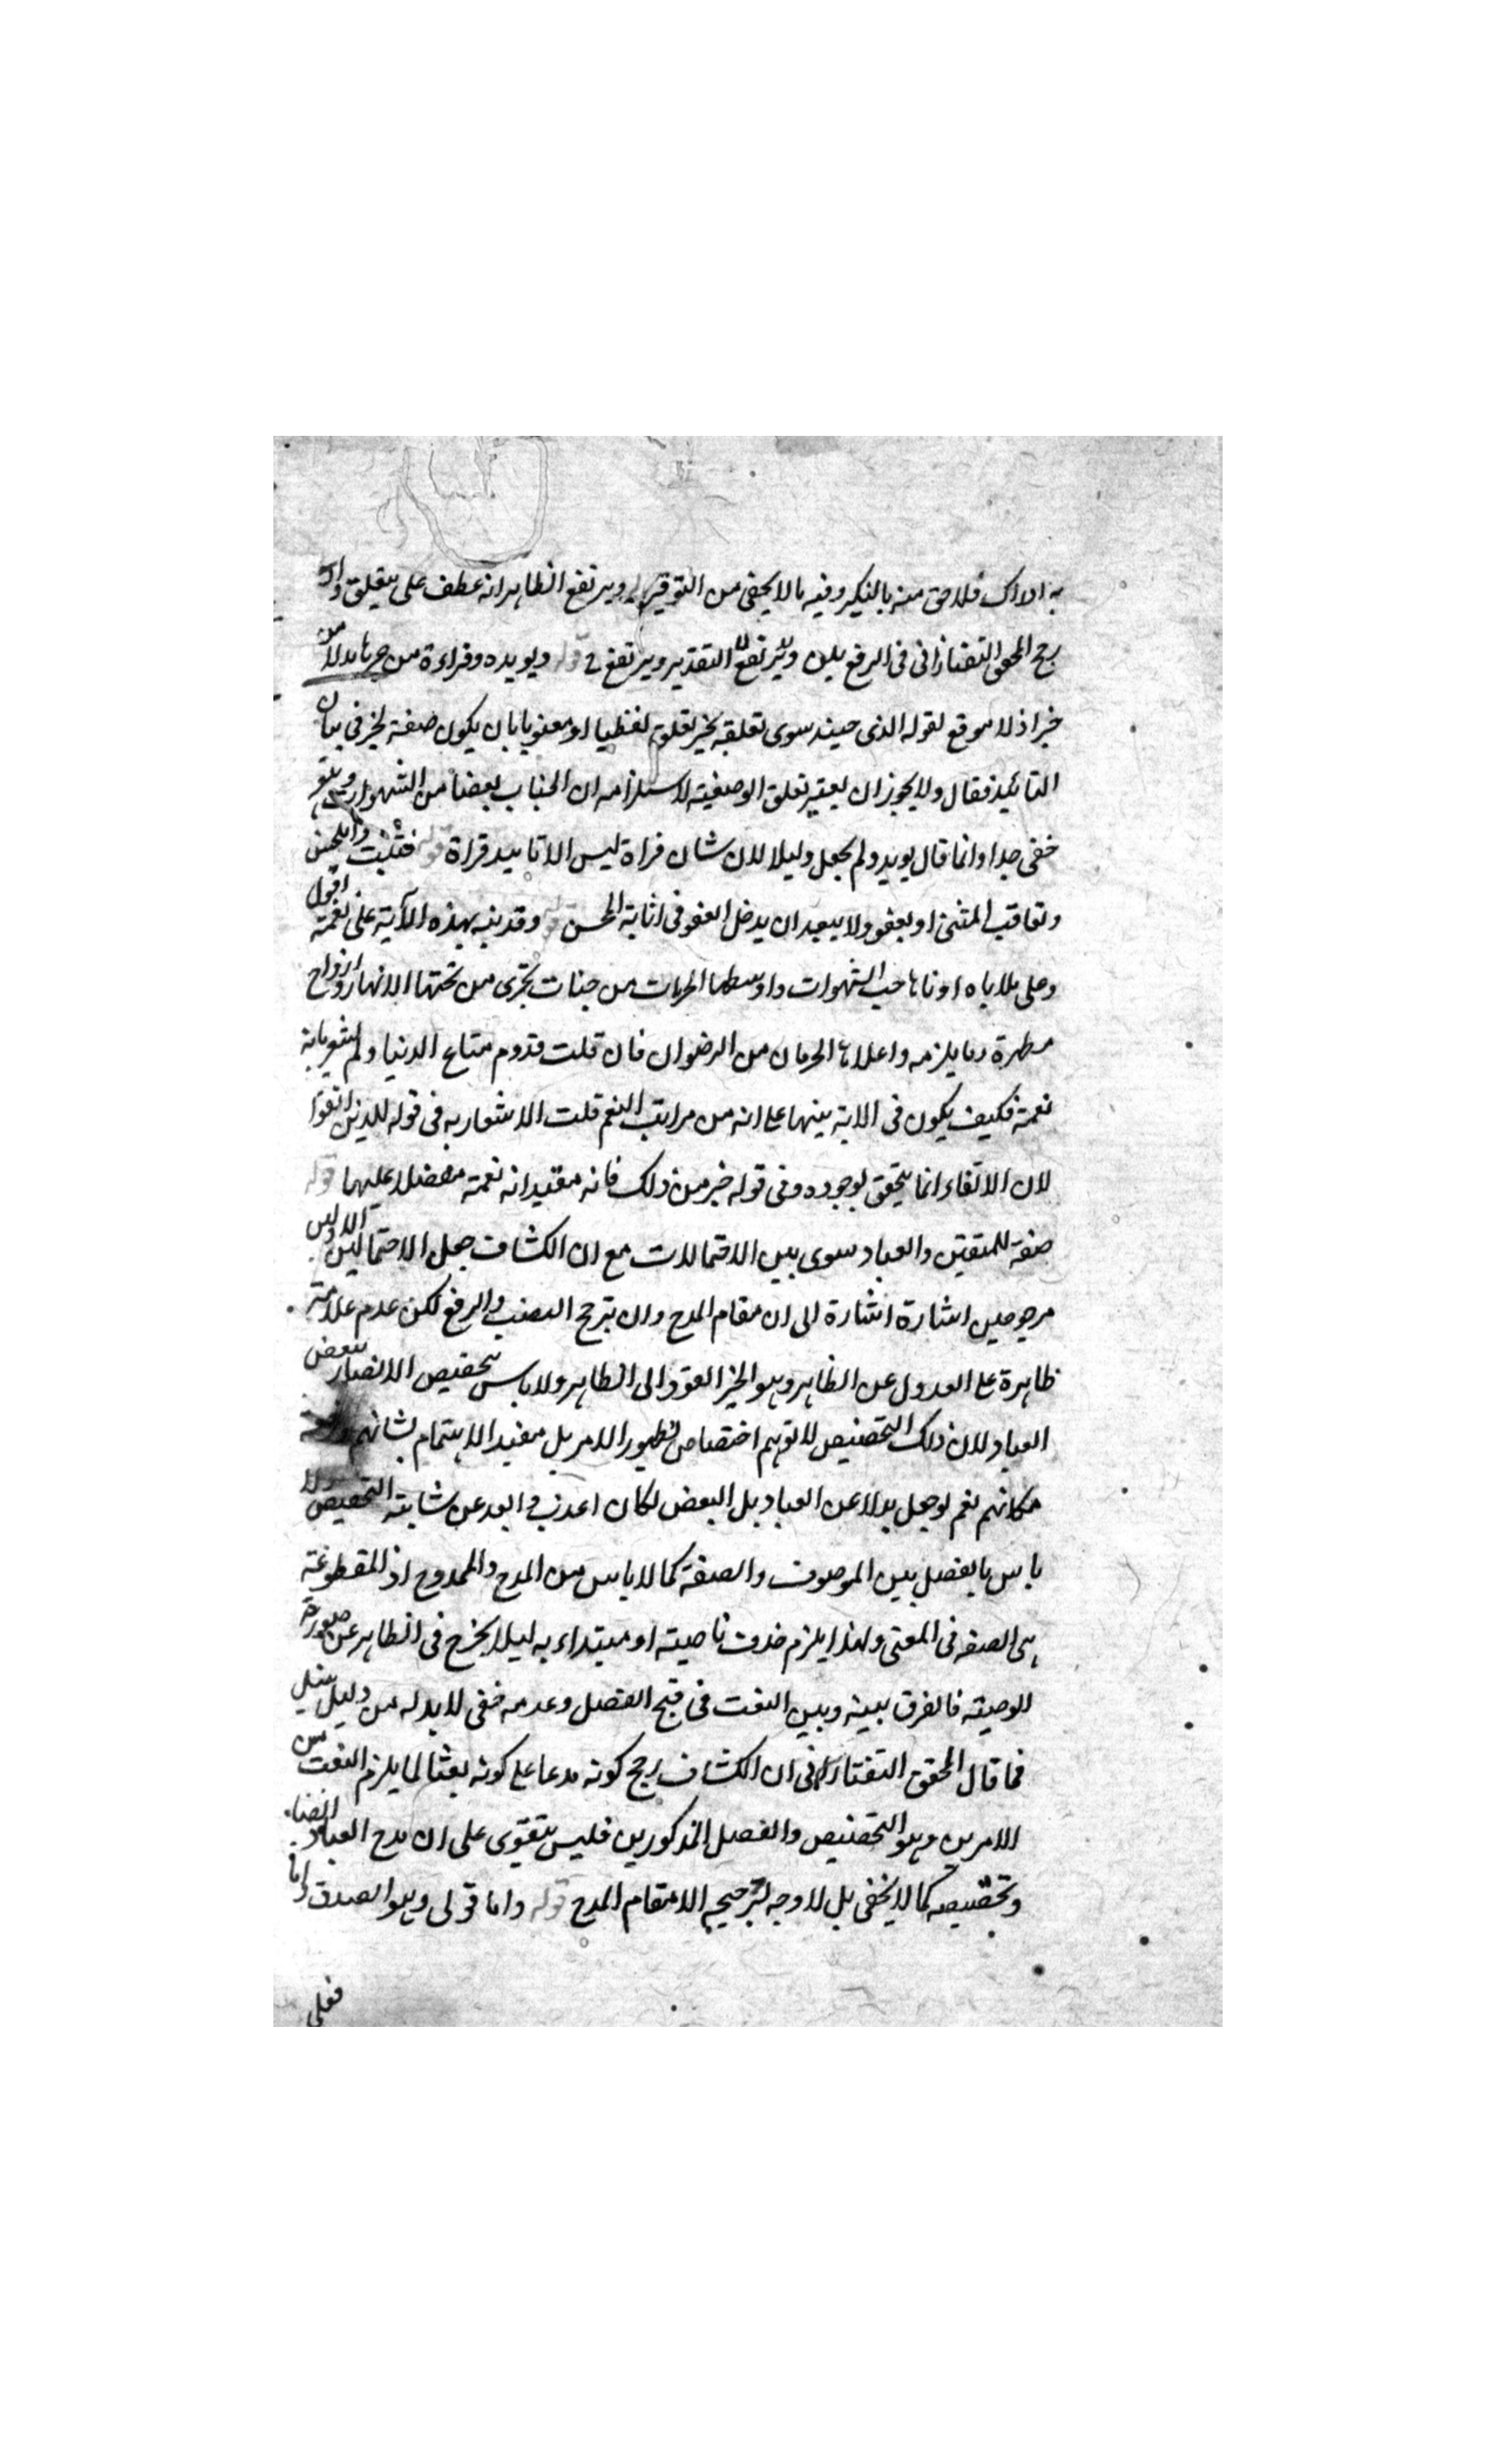 به ادراك فلاحق منه بالنكير وفيه ما لا يخفى من التوقير ويرتفع الظاهر انه عطف على يتعلق وان
رجح المحقق التفتازانى فى الرفع بلن ويرتفع التقدير ويرتفع قوله ويويده وقراءة من جرها بدلا من
خبر اذ لا موقع لقوله الذى حينئذ سوى تعلقه بخير تعلق لفظيا او معنويا بان يكون صفة لخير فى بيان
التائيد فقال ولا يجوز ان يعتبر تعلق الوصفية لاستلزامه ان الجناب بعضا من الشهوات
خفى جدا وانما قال يويد ولم يجعل دليلا لان شان قراة ليس الا تاييد قراة قوله فيثيب المحسن
ويعاقب المسئ او يعفو ولا يبعد ان يدخل العفو فى اثابة المحسن قوله وقد نبه بهذه الآية على نعمه اقول
وحلى بلاياه ادناها حب الشهوات واوسطها الحرمات من جنات تجرى من تحتها الانهار وازواج
مطهرة وما يلزمه واعلاها الحرمان من الرضوان فان قلت قد وم متاع الدنيا ولم يشعر بانه
نعمة فكيف يكون فى الاية بينها على انه من مراتب النعم قلت الاشعار به فى قوله للذين اتقوا
لان الاتقاء انما يتحقق بوجوده وفى قوله خير من ذلك فانه مفيد انه نعمة مفضلا عليها قوله
صفة للمتقين والعباد سوى بين الاحتمالات مع ان الكشاف جعل الاحتمالين الاولين
مرجوحين اشارة اشارة الى ان مقام المدح وان يترجح النصب والرفع لكن عدم علامة
ظاهرة على العدول عن الظاهر وهو الخبر العود الى الظاهر ولا باس بتخصيص الانصار ببعض
العباد لان ذلك التخصيص لا توهم اختصاص لظهور الامر بل مفيد الاهتمام بشانهم
مكانهم نعم لو جعل بدلا عن العباد بل البعض لكان اعذب وابعد عن شائبة التخصيص ولا
باس بالفصل بين الموصوف والصفة كما لا باس من المدح والممدوح اذ المقطوعة
هى الصفه فى المعنى ولهذا يلزم حذف ناصبه او مبتداء به ليلا يخرج فى الظاهر عن صورة
الوصفية فالفرق بينه وبين النعت فى قبح الفصل وعدمه خفى لا بد له من دليل
فما قال المحقق التفتازانى ان الكشاف رجح كونه مدحا على كونه نعتا لما يلزم النعت من
الامرين وهو التخصيص والفصل المذكورين فليس يتقوى على ان مدح العباد ايضا
وتخصيصه كما لا يخفى بل لا وجه لترجيحه الا مقام المدح قوله واما قولى وهو الصدق واما
فعلى